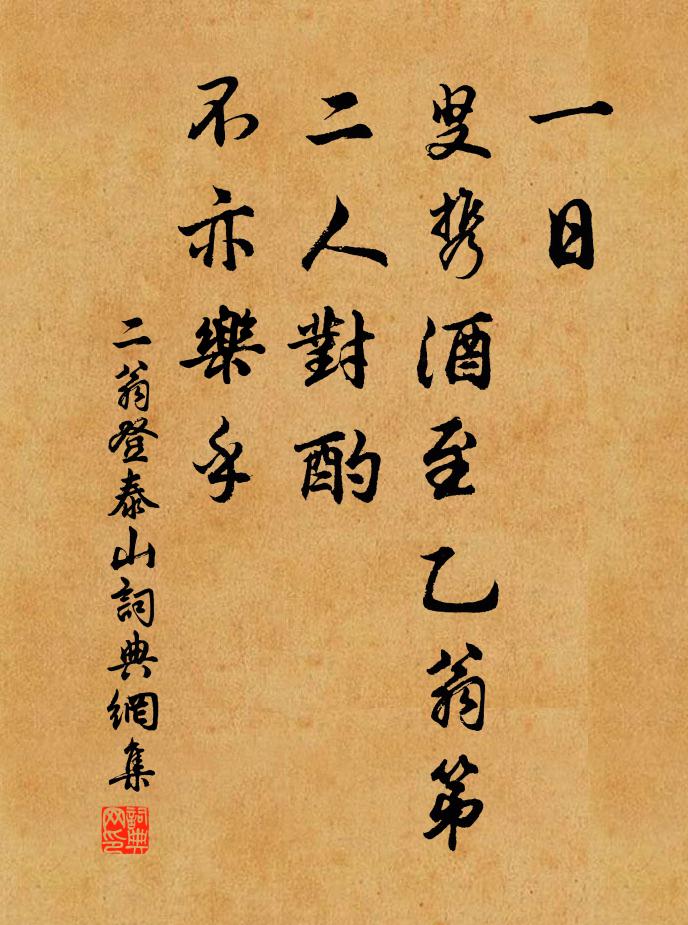 一日
叟携酒至乙翁第
二人對酌
不亦樂乎
二翁登泰山詞典網集
詞典
网印